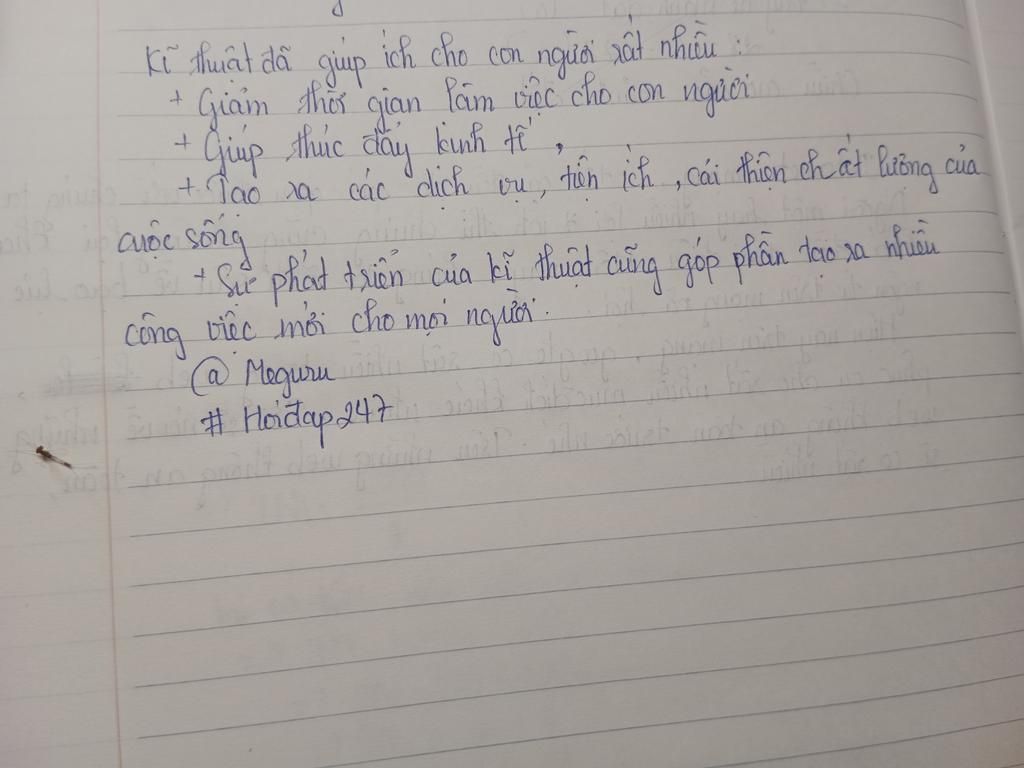 Kĩ thuật đã giúp ích cho con người rất nhiều :
+ Giảm thời gian làm việc cho con người
+ Giúp thúc đẩy kinh tế ,
+ Tạo ra các dịch vụ, tiện ích , cải thiện chất lượng của
cuộc sống
+ Sự phát triển của kĩ thuật cũng góp phần tạo ra nhiều
công việc mới cho mọi người.
@ Meguru
# Hoiđap247